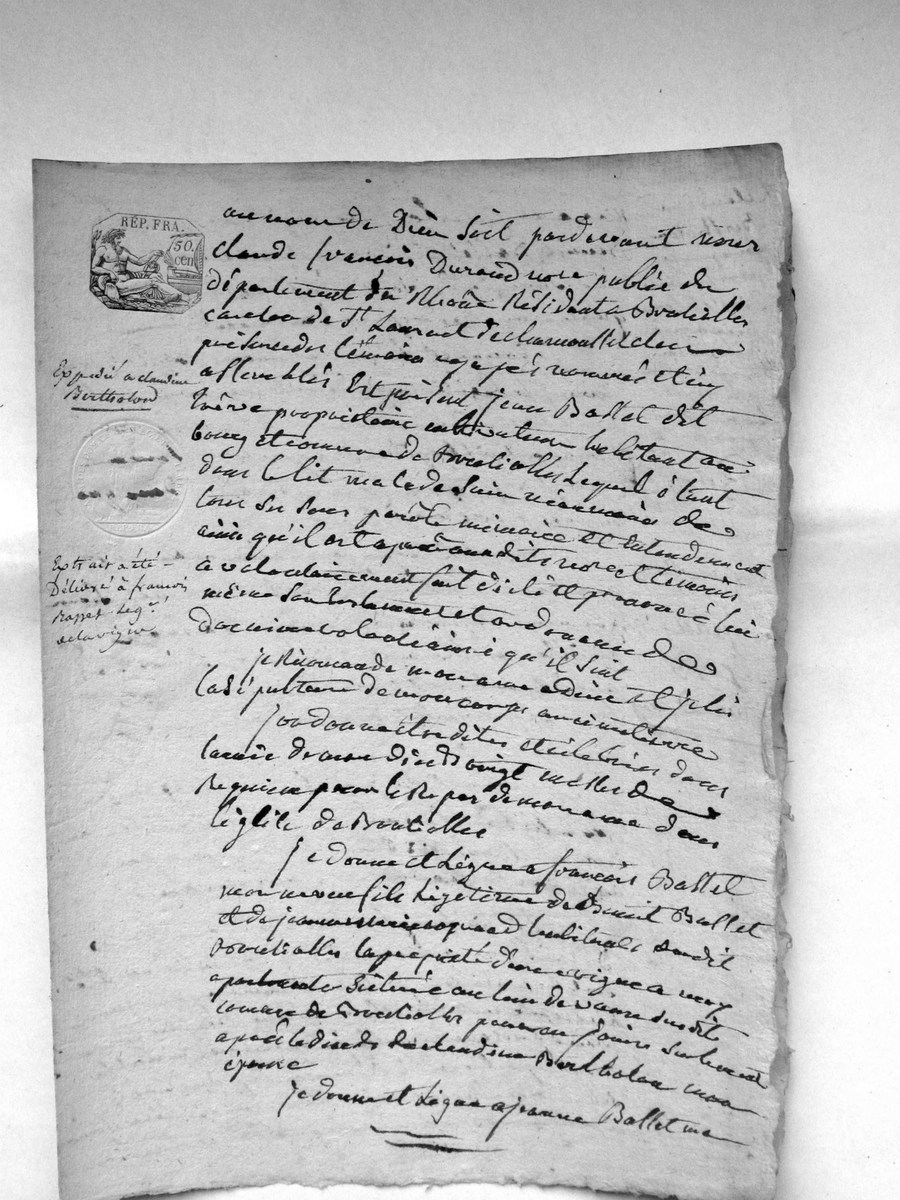 RÉP. FRA.
50.
cen
au nom de Dieu Soit pardevant nous
claude françois Durand nore public du
département du Rhône Résidant a Brulioles
canton de St Laurent de chamousset et en
présence des témoins cy après nommés et icy
assemblés Est présent jean Ballet dit
propriétaire cultivateur habitant au
bourg et commune de Brulioles Lequel étant
dans le lit malade sain néanmoins de
tous ses sens parole mémoire et Entendement
ainsi qu'il est apparu audits nore et témoins
a volontairement fait dicté et prononcé lui
même Son testament et ordonnance de
dernière volonté ainsi qu'il Suit
je Recommande mon ame a Dieu et
la Sépulture de mon corps au cimetière
j'ordonne être dites et célébrées dans
l'année de mon Décès vingt messes de
Requiem pour le Repos de mon ame dans
l'église de Brulioles
je donne et Lègue a françois Ballet
mon neveu fils Légitime de Benoit Ballet
et de jeanne marie habitants dudit
Brulioles la propriété d'une vigne a moy
Située au lieu de susdite
commune de Brulioles pour en jouir Seulement
après le décès de claudine Bertholon mon
épouse
je donne et Lègue a jeanne Ballet ma
Expédié a claudine
Bertholon
Extrait a été
Délivré à francois
Leg.
de la vigne